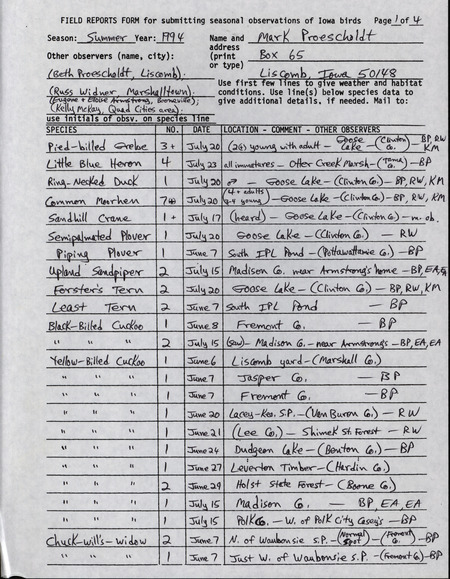 FIELD REPORTS FORM for submitting seasonal observations of Iowa birds Page 1 of 4
Season: Summer Year: 1994 Name and Mark Proescholdt
address
Other observers (name, city): (print Box 65
or type)
(Beth Proescholdt, Liscomb). Liscomb, Iowa 50148
(Russ Widner, Marshalltown). Use first few lines to give weather and habitat
(Eugene + Eloise Armstrong, Booneville); conditions. Use line(s) below species data to
(Kelly McKay, Quad Cities area). give additional details, if needed. Mail to:
use initials of obsv. on species line
SPECIES NO. DATE LOCATION - COMMENT - OTHER OBSERVERS
Pied-billed Grebe 3+ July 20 (2G) young with adult - Goose Lake - (Clinton Co.) - BP, RW, KM
Little Blue Heron 4 July 23 all immatures - Otter Creek Marsh - (Tama Co.) - BP
Ring-Necked Duck 1 July 20 ♂ - Goose Lake - (Clinton Co.) - BP, RW, KM
Common Moorhen July 20 (4+ adults young) - Goose Lake - (Clinton Co.) - BP, RW, KM
Sandhill Crane 1+ July 17 (heard) - Goose Lake - (Clinton Co.) - m. ob.
Semipalmated Plover 1 July 20 Goose Lake - (Clinton Co.) - RW
Piping Plover 1 June 7 South IPL Pond - (Pottawattamie Co.) - BP
Upland Sandpiper 2 July 15 Madison Co. near Armstrong's home - BP, EA, EA
Forster's Tern 2 July 20 Goose Lake - (Clinton Co.) - BP, RW, KM
Least Tern 2 June 7 South IPL Pond - BP
Black-Billed Cuckoo 1 June 8 Fremont Co. - BP
" " " 2 July 15 (saw) - Madison Co. - near Armstrong's - BP, EA, EA
Yellow-Billed Cuckoo 1 June 6 Liscomb yard - (Marshall Co.)
" " " 1 June 7 Jasper Co. - BP
" " " 1 June 7 Fremont Co. - BP
" " " 1 June 20 Lacey-Keo. S.P. - (Van Buren Co.) - RW
" " " 1 June 21 (Lee Co.) - Shimek St. Forest - RW
" " " 1 June 24 Dudgeon Lake - (Benton Co.) - BP
" " " 1 June 27 Leverton Timber - (Hardin Co.)
" " " 2 June 29 Holst State Forest - (Boone Co.)
" " " 1 July 15 Madison Co. - BP, EA, EA
" " " 1 July 15 Polk Co. - W. of Polk City Casey's - BP
Chuck-will's-widow 2 June 7 N. of Waubonsie S.P. - (Normal Spot) - (Fremont Co.) - BP
" " " 1 June 7 Just W. of Waubonsie S.P. - (Fremont Co.) - BP